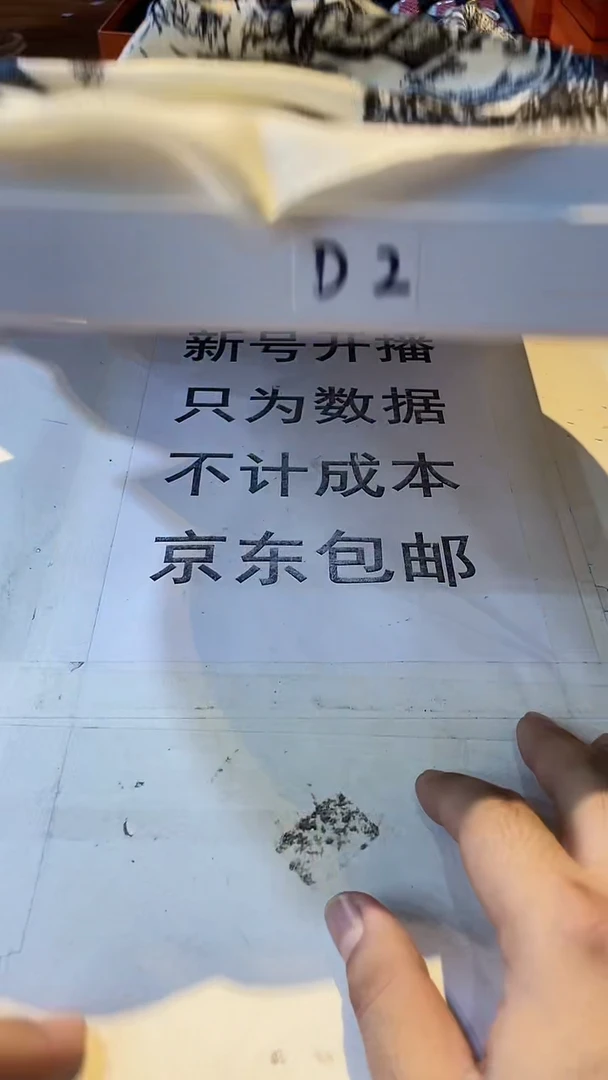 D2
新号开播
只为数据
不计成本
京东包邮